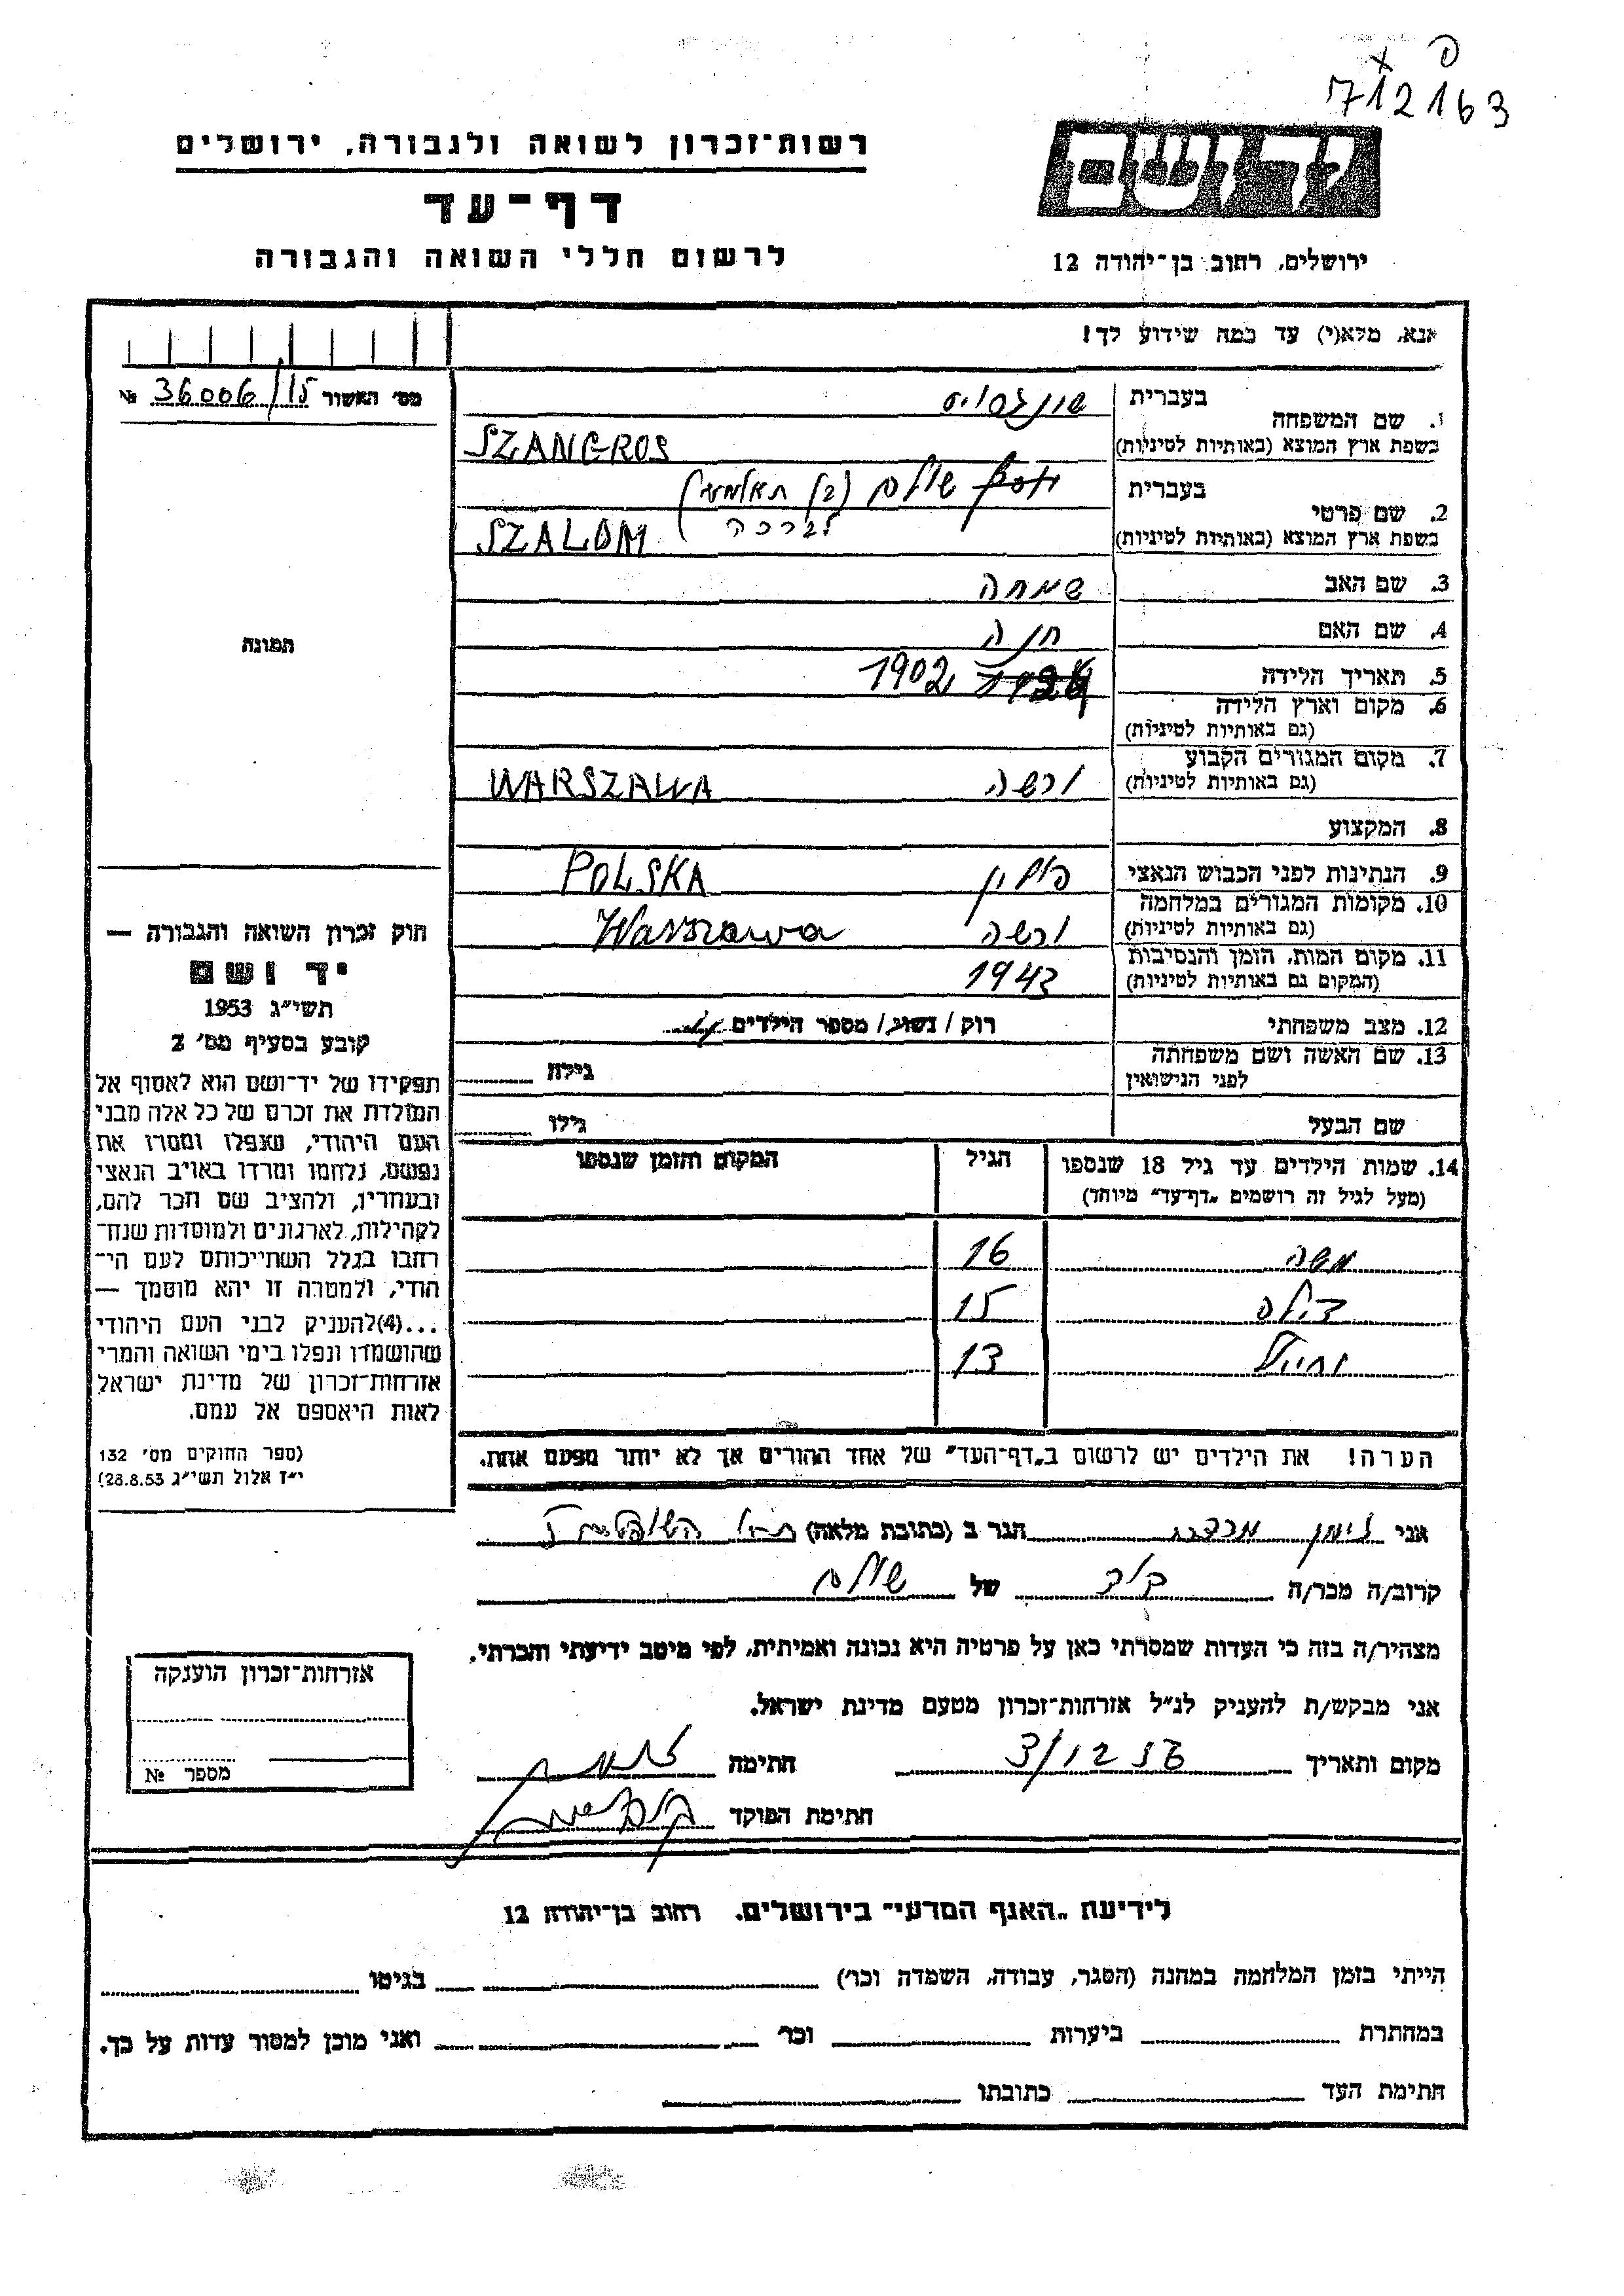 712163
רשות-זכרון לשואה ולגבורה, ירושלים
דף-עד
לרשום חללי השואה והגבורה
יד ושם
ירושלים, רחוב בן-יהודה 12
אנא, מלא(י) עד כמה שידוע לך!
מס' האשור 36006/15 №
1. שם המשפחה
בעברית
בשפת ארץ המוצא (באותיות לטיניות) SZANCROS
2. שם פרטי
בעברית שולם
בשפת ארץ המוצא (באותיות לטיניות) SZALOM
לברכה
3. שם האב שמחה
4. שם האם חנה
5. תאריך הלידה 1902
6. מקום וארץ הלידה
(גם באותיות לטיניות)
7. מקום המגורים הקבוע
(גם באותיות לטיניות) ורשה WARSZAWA
8. המקצוע
9. הנתינות לפני הכבוש הנאצי פולין POLSKA
10. מקומות המגורים במלחמה
(גם באותיות לטיניות) ורשה Warszawa
11. מקום המות, הזמן והנסיבות
(המקום גם באותיות לטיניות) 1943
12. מצב משפחתי רוק / נשוי / מספר הילדים
13. שם האשה ושם משפחתה
לפני הנישואין גילה
שם הבעל גילו
14. שמות הילדים עד גיל 18 שנספו הגיל המקום והזמן שנספו
(מעל לגיל זה רושמים „דף-עד" מיוחד)
משה 16
15
13
הערה! את הילדים יש לרשום ב„דף-העד" של אחד ההורים אך לא יותר מפעם אחת.
תמונה
חוק זכרון השואה והגבורה —
יד ושם
תשי"ג 1953
קובע בסעיף מס' 2
תפקידו של יד-ושם הוא לאסוף אל
המולדת את זכרם של כל אלה מבני
העם היהודי, שנפלו ומסרו את
נפשם, נלחמו ומרדו באויב הנאצי
ובעוזריו, ולהציב שם וזכר להם,
לקהילות, לארגונים ולמוסדות שנח-
רבו בגלל השתייכותם לעם הי-
הודי, ולמטרה זו יהא מוסמך —
...(4) להעניק לבני העם היהודי
שהושמדו ונפלו בימי השואה והמרי
אזרחות-זכרון של מדינת ישראל
לאות היאספם אל עמם.
(ספר החוקים מס' 132
י"ז אלול תשי"ג 28.8.53)
אני הגר ב (כתובת מלאה)
קרוב/ה מכר/ה של שולם
מצהיר/ה בזה כי העדות שמסרתי כאן על פרטיה היא נכונה ואמיתית, לפי מיטב ידיעתי והכרתי.
אני מבקש/ת להעניק לנ"ל אזרחות-זכרון מטעם מדינת ישראל.
מקום ותאריך חתימה
חתימת הפוקד
אזרחות-זכרון הוענקה
מספר №
לידיעת „האגף המדעי" בירושלים, רחוב בן-יהודה 12
הייתי בזמן המלחמה במחנה (הסגר, עבודה, השמדה וכו') בגיטו
במחתרת ביערות וכו' ואני מוכן למסור עדות על כך.
חתימת העד כתובתו